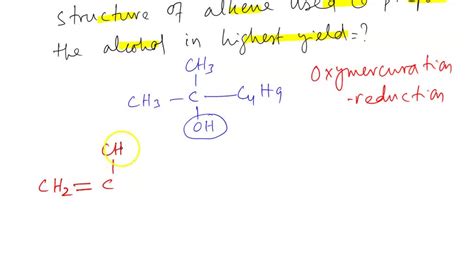 structure of alkene used to
the alcohol in highest yield=?
CH3
CH3 - C - C4H9
OH
Oxymercuration
-reduction
CH
CH2 = C